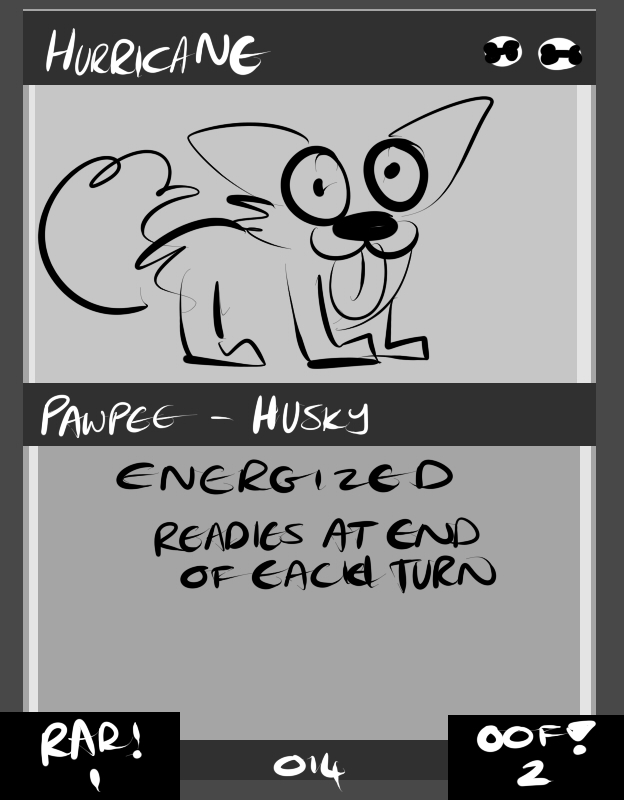 HURRICANE
PAWPEE - HUSKY
ENERGIZED
READIES AT END
OF EACH TURN
RAR!
1
014
OOF!
2